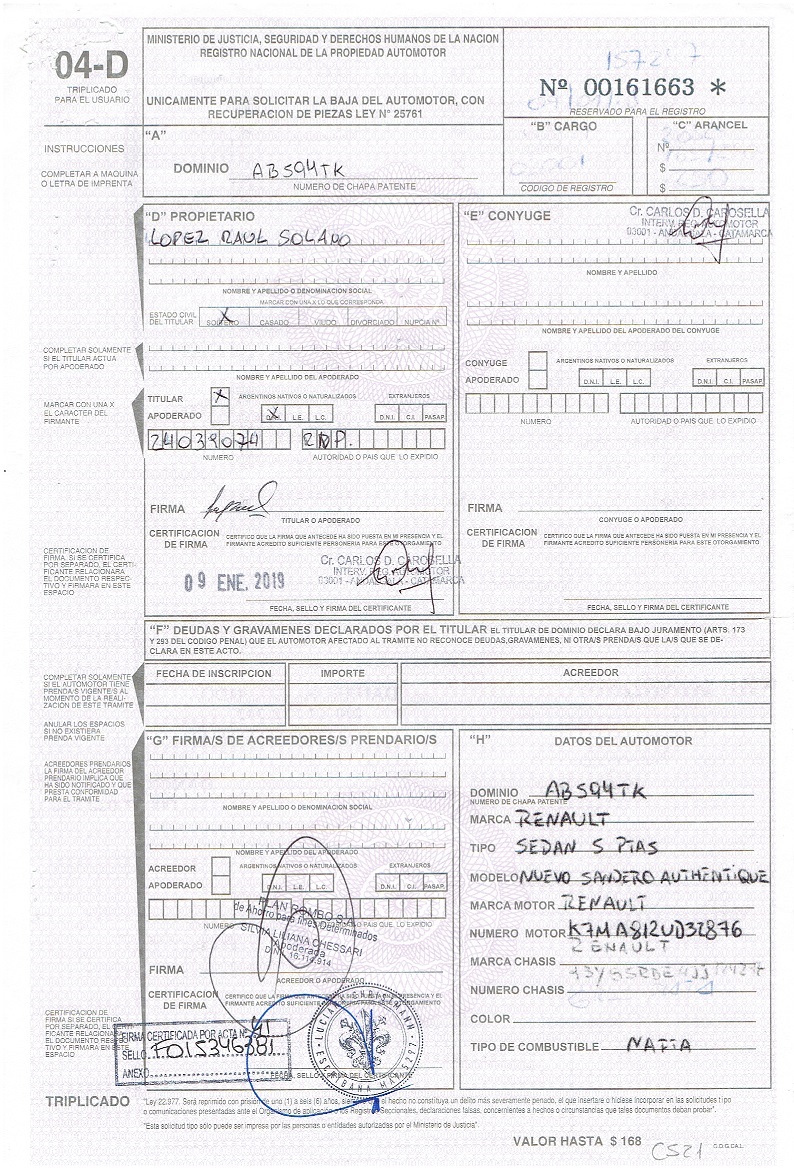 04-D
TRIPLICADO
PARA EL USUARIO
MINISTERIO DE JUSTICIA, SEGURIDAD Y DERECHOS HUMANOS DE LA NACION
REGISTRO NACIONAL DE LA PROPIEDAD AUTOMOTOR
UNICAMENTE PARA SOLICITAR LA BAJA DEL AUTOMOTOR, CON
RECUPERACION DE PIEZAS LEY N° 25761
Nº 00161663 *
RESERVADO PARA EL REGISTRO
INSTRUCCIONES
COMPLETAR A MAQUINA
O LETRA DE IMPRENTA
"A"
DOMINIO AB594TK
NUMERO DE CHAPA PATENTE
"B" CARGO
CODIGO DE REGISTRO
"C" ARANCEL
Nº
$
$
"D" PROPIETARIO
LOPEZ RAUL SOLANO
NOMBRE Y APELLIDO O DENOMINACION SOCIAL
MARCAR CON UNA X LO QUE CORRESPONDA
ESTADO CIVIL
DEL TITULAR
X
SOLTERO CASADO VIUDO DIVORCIADO NUPCIA Nº
COMPLETAR SOLAMENTE
SI EL TITULAR ACTUA
POR APODERADO
NOMBRE Y APELLIDO DEL APODERADO
MARCAR CON UNA X
EL CARACTER DEL
FIRMANTE
TITULAR X
APODERADO
ARGENTINOS NATIVOS O NATURALIZADOS
X L.E. L.C.
EXTRANJEROS
D.N.I. C.I. PASAP.
24039074
NUMERO
AUTORIDAD O PAIS QUE LO EXPIDIO
FIRMA
TITULAR O APODERADO
CERTIFICACION
DE FIRMA
CERTIFICO QUE LA FIRMA QUE ANTECEDE HA SIDO PUESTA EN MI PRESENCIA Y EL
FIRMANTE ACREDITO SUFICIENTE PERSONERIA PARA ESTE OTORGAMIENTO
CERTIFICACION DE
FIRMA. SI SE CERTIFICA
POR SEPARADO, EL CERTI-
FICANTE RELACIONARA
EL DOCUMENTO RESPEC-
TIVO Y FIRMARA EN ESTE
ESPACIO
09 ENE. 2019
Cr. CARLOS D. CAROSELLA
INTERV. REG. AUTOMOTOR
03001 - ANDALGALA - CATAMARCA
FECHA, SELLO Y FIRMA DEL CERTIFICANTE
"E" CONYUGE
Cr. CARLOS D. CAROSELLA
INTERV. REG. AUTOMOTOR
03001 - ANDALGALA - CATAMARCA
NOMBRE Y APELLIDO
NOMBRE Y APELLIDO DEL APODERADO DEL CONYUGE
CONYUGE
APODERADO
ARGENTINOS NATIVOS O NATURALIZADOS
D.N.I. L.E. L.C.
EXTRANJEROS
D.N.I. C.I. PASAP.
NUMERO
AUTORIDAD O PAIS QUE LO EXPIDIO
FIRMA
CONYUGE O APODERADO
CERTIFICACION
DE FIRMA
CERTIFICO QUE LA FIRMA QUE ANTECEDE HA SIDO PUESTA EN MI PRESENCIA Y EL
FIRMANTE ACREDITO SUFICIENTE PERSONERIA PARA ESTE OTORGAMIENTO
FECHA, SELLO Y FIRMA DEL CERTIFICANTE
"F" DEUDAS Y GRAVAMENES DECLARADOS POR EL TITULAR EL TITULAR DE DOMINIO DECLARA BAJO JURAMENTO (ARTS. 173
Y 293 DEL CODIGO PENAL) QUE EL AUTOMOTOR AFECTADO AL TRAMITE NO RECONOCE DEUDAS,GRAVAMENES, NI OTRA/S PRENDA/S QUE LA/S QUE SE DE-
CLARA EN ESTE ACTO.
COMPLETAR SOLAMENTE
SI EL AUTOMOTOR TIENE
PRENDA/S VIGENTE/S AL
MOMENTO DE LA REALI-
ZACION DE ESTE TRAMITE
ANULAR LOS ESPACIOS
SI NO EXISTIERA
PRENDA VIGENTE
FECHA DE INSCRIPCION
IMPORTE
ACREEDOR
ACREEDORES PRENDARIOS
LA FIRMA DEL ACREEDOR
PRENDARIO IMPLICA QUE
HA SIDO NOTIFICADO Y QUE
PRESTA CONFORMIDAD
PARA EL TRAMITE
"G" FIRMA/S DE ACREEDORES/S PRENDARIO/S
NOMBRE Y APELLIDO O DENOMINACION SOCIAL
NOMBRE Y APELLIDO DEL APODERADO
ACREEDOR
APODERADO
ARGENTINOS NATIVOS O NATURALIZADOS
D.N.I. L.E. L.C.
EXTRANJEROS
D.N.I. C.I. PASAP.
NUMERO
AUTORIDAD O PAIS QUE LO EXPIDIO
PLAN ROMBO S.A.
de Ahorro para fines Determinados
SILVIA LILIANA CHESSARI
Apoderada
D.N.I. 16.114.914
FIRMA
ACREEDOR O APODERADO
CERTIFICACION
DE FIRMA
CERTIFICO QUE LA FIRMA QUE ANTECEDE HA SIDO PUESTA EN MI PRESENCIA Y EL
FIRMANTE ACREDITO SUFICIENTE PERSONERIA PARA ESTE OTORGAMIENTO
CERTIFICACION DE
FIRMA SI SE CERTIFICA
POR SEPARADO, EL CERTI-
FICANTE RELACIONARA
EL DOCUMENTO RESPEC-
TIVO Y FIRMARA EN ESTE
ESPACIO
FIRMA CERTIFICADA POR ACTA Nº
SELLO F015346381
ANEXO
FECHA, SELLO Y FIRMA DEL CERTIFICANTE
ESCRIBANA MAT. 5297
"H" DATOS DEL AUTOMOTOR
DOMINIO AB594TK
NUMERO DE CHAPA PATENTE
MARCA RENAULT
TIPO SEDAN 5 PTAS
MODELO NUEVO SANDERO AUTHENTIQUE
MARCA MOTOR RENAULT
NUMERO MOTOR K7MA812UD32876
RENAULT
MARCA CHASIS
NUMERO CHASIS
COLOR
TIPO DE COMBUSTIBLE NAFTA
TRIPLICADO
"Ley 22.977. Será reprimido con prisión de uno (1) a seis (6) años, siempre que el hecho no constituya un delito más severamente penado, el que insertare o hiciese incorporar en las solicitudes tipo
o comunicaciones presentadas ante el Organismo de aplicación o los Registros Seccionales, declaraciones falsas, concernientes a hechos o circunstancias que tales documentos deban probar".
"Esta solicitud tipo sólo puede ser impresa por las personas o entidades autorizadas por el Ministerio de Justicia".
VALOR HASTA $ 168
C521